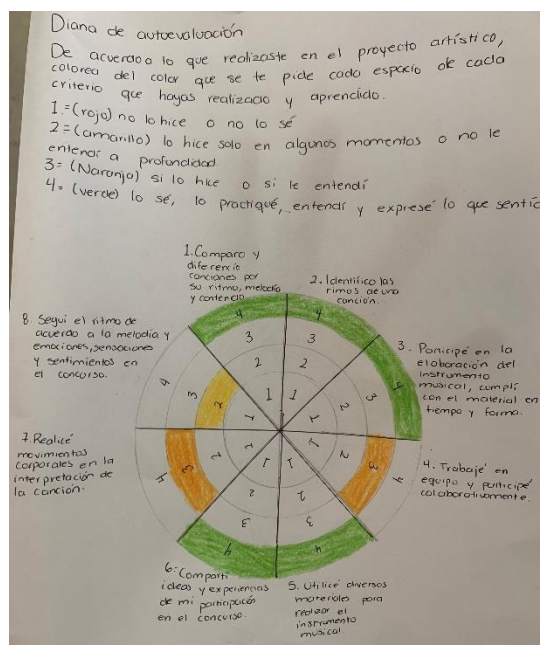 Diana de autoevaluación
De acuerdo a lo que realizaste en el proyecto artístico,
colorea del color que se te pide cada espacio de cada
criterio que hayas realizado y aprendido.
1.=(rojo) no lo hice o no lo sé
2=(amarillo) lo hice solo en algunos momentos o no le
entendí a profundidad
3=(Naranja) si lo hice o si le entendí
4=(verde) lo sé, lo practiqué, entendí y expresé lo que sentía
1.Comparo y
diferencio
canciones por
su ritmo, melodía
y contenido
2. Identifico las
rimas de una
canción.
3. Participé en la
elaboración del
instrumento
musical, cumplí
con el material en
tiempo y forma.
4. Trabajé en
equipo y participé
colaborativamente.
5. Utilicé diversos
materiales para
realizar el
instrumento
musical
6. Compartí
ideas y experiencias
de mi participación
en el concurso.
7. Realicé
movimientos
corporales en la
interpretación de
la canción.
8. Seguí el ritmo de
acuerdo a la melodía y
emociones, sensaciones
y sentimientos en
el concurso.
4 4
3 3
2 2
1 1
4 3 2 1
1 2 3 4
4 3 2 1
1 2 3 4
1 1
2 2
3 3
4 4